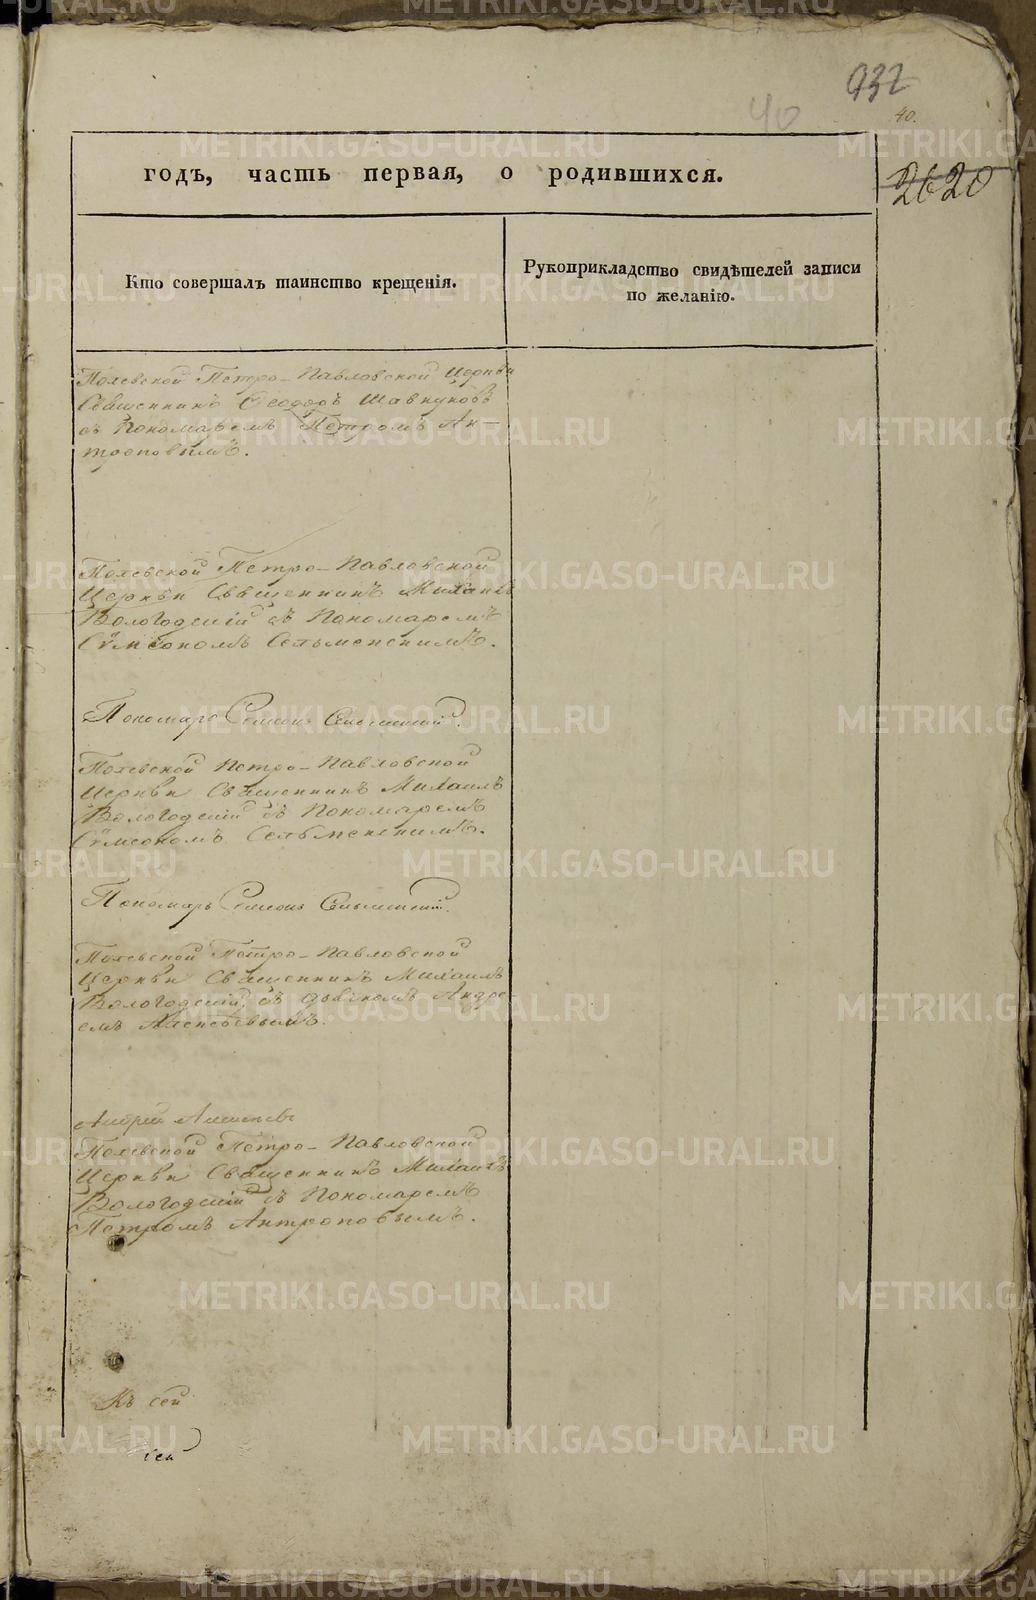 937
40
40.
2620
годъ, часть первая, о родившихся.
Кто совершалъ таинство крещенія.
Рукоприкладство свидѣтелей записи
по желанію.
Полевской Петро-Павловской Церкви
Священникъ Ѳеодоръ Шавкуновъ
съ Пономаремъ Петромъ Ан-
троповымъ.
Полевской Петро-Павловской
Церкви Священникъ Михаилъ
Вологодскій съ Пономаремъ
Сѵмеономъ Сельменскимъ.
Пономарь Семенъ Сельменскій.
Полевской Петро-Павловской
Церкви Священникъ Михаилъ
Вологодскій съ Пономаремъ
Сѵмеономъ Сельменскимъ.
Пономарь Семенъ Сельменскій.
Полевской Петро-Павловской
Церкви Священникъ Михаилъ
Вологодскій съ дьячкомъ Андре
емъ Алексѣевымъ.
Андрей Алексѣевъ
Полевской Петро-Павловской
Церкви Священникъ Михаилъ
Вологодскій съ Пономаремъ
Петромъ Антроповымъ.
Къ сей
сей
METRIKI.GASO-URAL.RU